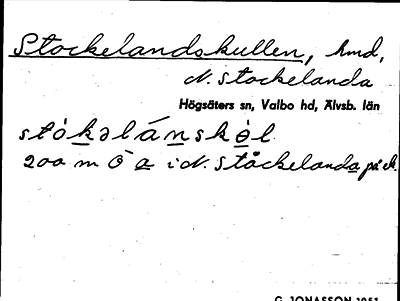 Stockelandskullen, hmd,
N. Stockelanda
Högsäters sn, Valbo hd, Älvsb. län
stòkəlánskèl
200 m Ö a i N. Stockelanda på ek.
G. JONASSON 1951